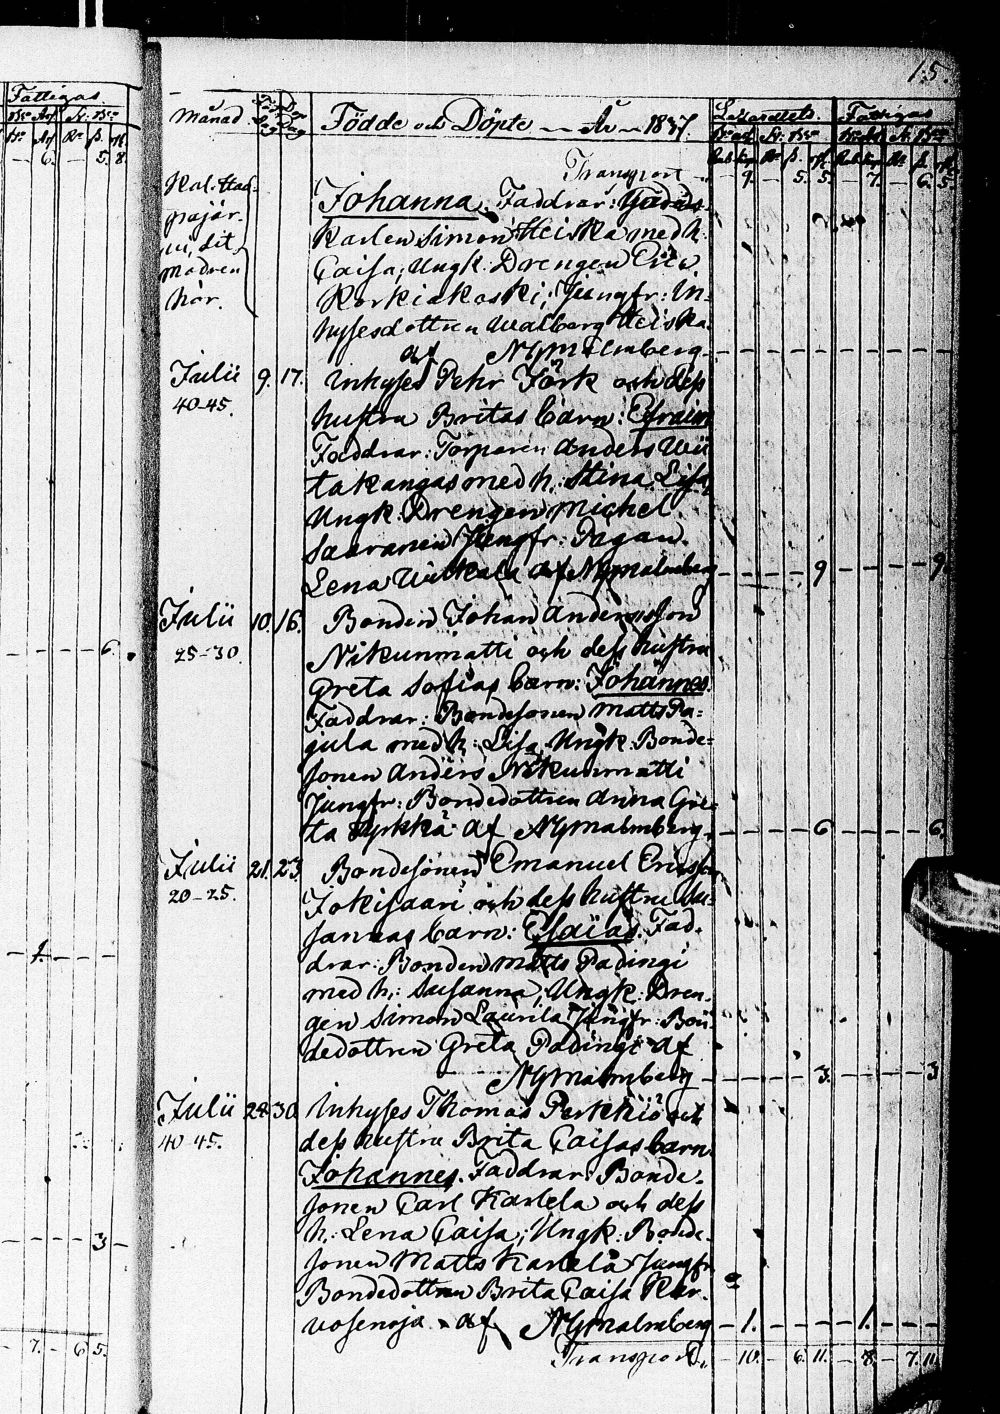 Fattigas
6. 5. 8.
6.
1.
3
7. 6 5.
15.
Månad
Dag
Dag
Födde och Döpte — År — 1837.
Lazarettets. Fattigas
Transport
9. 5. 5. 7. 6. 5.
Johanna. Faddrar:
Karlen Simon Heiska med h:
Caisa; Ungk: Drengen Eric
Korkiakoski; Jungfr: In-
hysesdottren Walberg Heiska.
af NGMalmberg
Modren
hör.
Julii 9. 17.
40-45.
Inhyses Pehr Törk och dess
hustru Britas barn: Efraim
Faddrar: Torparen Anders Wii
takangas med h: Stina Lisa,
Ungk: Drengen Michel
Saaranen Jungfr: Pigan
Lena af NGMalmberg
9 9
Julii 10. 16.
25-30.
Bonden Johan Andersson
Nikunmatti och dess hustru
Greta Sofias barn: Johannes.
Faddrar: Bondesonen Matts Pa-
jula med h: Lisa, Ungk: Bonde-
sonen Anders Nikunmatti
Jungfr: Bondedottren Anna Gre-
ta Yrkkä af NGMalmberg
6 6.
Julii 21. 23.
20-25.
Bondesonen Emanuel Ericsson
Jokisaari och dess hustru Su-
sannas barn: Esaias. Fad-
drar: Bonden Matts Padingi
med h: Susanna, Ungk: Dren-
gen Simon Laurila Jungfr: Bon-
dedottren Greta Padingi af
NGMalmberg
3. 3
Julii 28 30
40-45.
Inhyses Thomas Perkkiö och
dess hustru Brita Caisas barn.
Johannes. Faddrar: Bonde-
sonen Carl Karlela och dess
h: Lena Caisa; Ungk: Bonde-
sonen Matts Karlela Jungfr:
Bondedottren Brita Caisa Kar-
vosenoja af NGMalmberg
1. 1.
Transport
10. 6. 11. 8. 7. 11